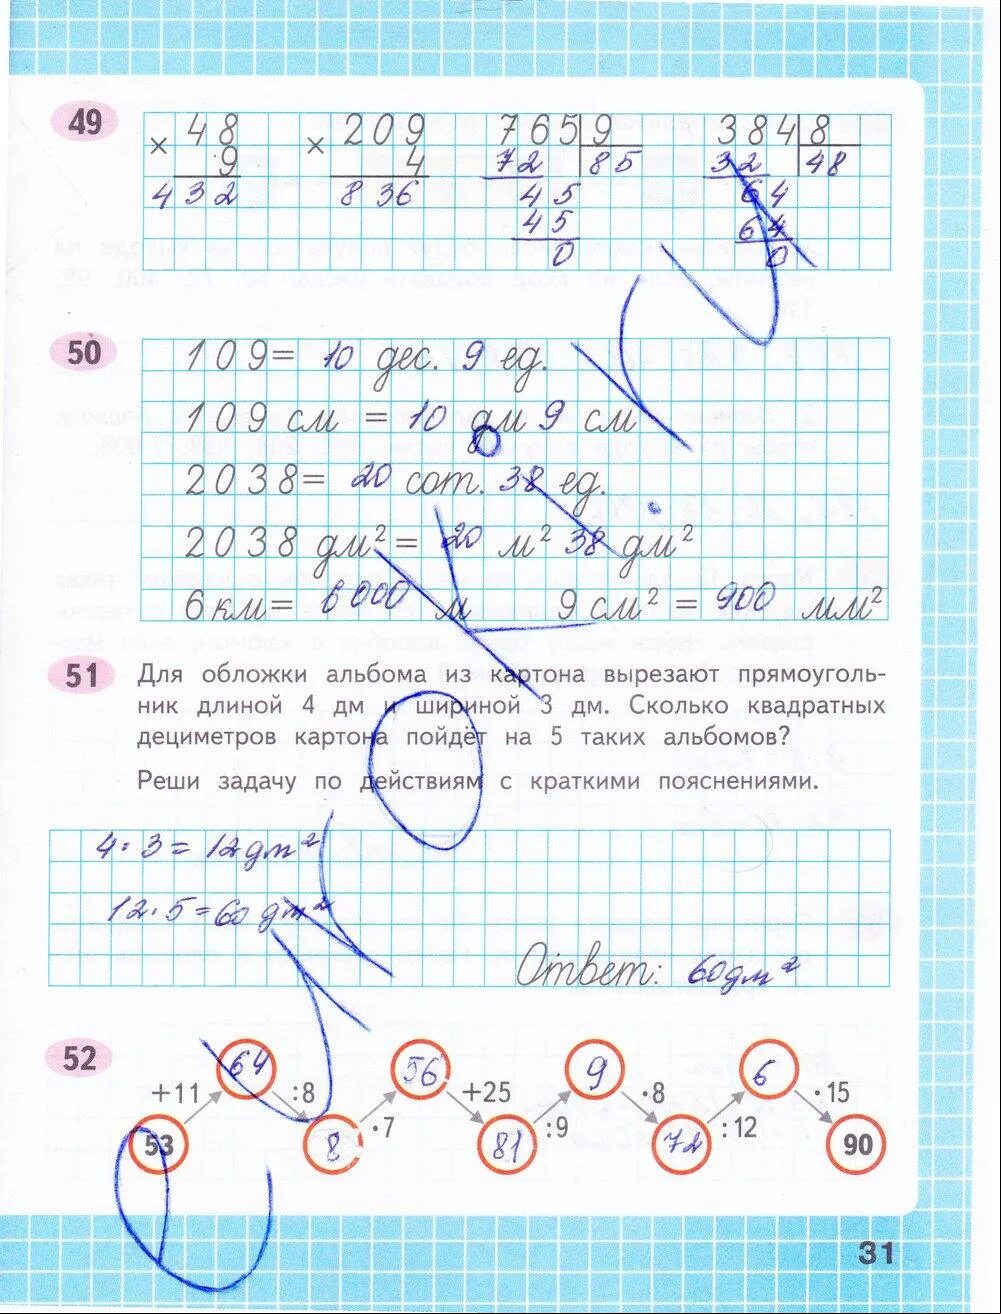 49
× 48
9
432
× 209
4
836
765 | 9
72 | 85
45
45
0
384 | 8
32 | 48
64
64
0
50
109 = 10 дес. 9 ед.
109 см = 10 дм 9 см
2038 = 20 сот. 38 ед.
2038 дм² = 20 м² 38 дм²
6 км = 6000 м 9 см² = 900 мм²
51 Для обложки альбома из картона вырезают прямоуголь-
ник длиной 4 дм и шириной 3 дм. Сколько квадратных
дециметров картона пойдёт на 5 таких альбомов?
Реши задачу по действиям с краткими пояснениями.
4·3 = 12 дм²
12·5 = 60 дм²
Ответ: 60 дм²
52
64 56 9 6
+11 :8 +25 ·8 ·15
·7 :9 :12
53 8 81 72 90
31